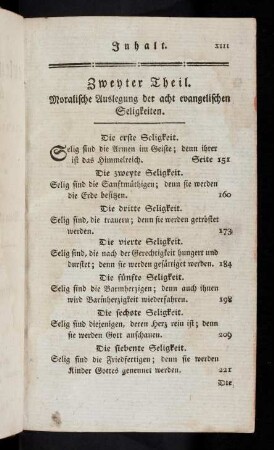 Inhalt. XIII
Zweyter Theil.
Moralische Auslegung der acht evangelischen
Seligkeiten.
Die erste Seligkeit.
Selig sind die Armen im Geiste; denn ihrer
ist das Himmelreich. Seite 151
Die zweyte Seligkeit.
Selig sind die Sanftmüthigen; denn sie werden
die Erde besitzen. 160
Die dritte Seligkeit.
Selig sind, die trauern; denn sie werden getröstet
werden. 173
Die vierte Seligkeit.
Selig sind, die nach der Gerechtigkeit hungert und
durstet; denn sie werden gesättiget werden. 184
Die fünfte Seligkeit.
Selig sind die Barmherzigen; denn auch ihnen
wird Barmherzigkeit wiederfahren. 198
Die sechste Seligkeit.
Selig sind diejenigen, deren Herz rein ist; denn
sie werden Gott anschauen. 209
Die siebente Seligkeit.
Selig sind die Friedfertigen; denn sie werden
Kinder Gottes genennet werden. 221
Die